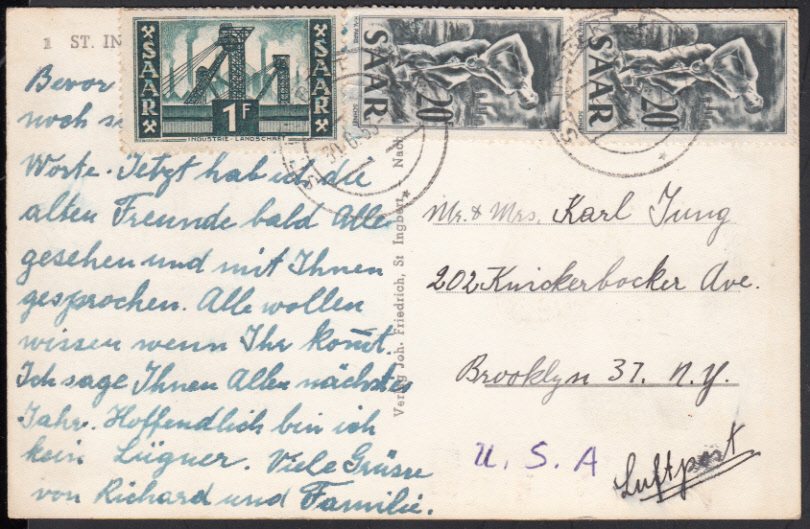 1 ST. IN
SAAR
1F
SAAR
INDUSTRIE-LANDSCHAFT
SAAR 20F
SAAR 20F
Bevor
noch
Worte. Jetzt hab ich die
alten Freunde bald Alle
gesehen und mit Ihnen
gesprochen. Alle wollen
wissen wenn Ihr kom̄t.
Ich sage Ihnen Allen nächstes
Jahr. Hoffendlich bin ich
kein Lügner. Viele Grüsse
von Richard und Familie.
Verlag Joh. Friedrich, St Ingbert - Nach
Mr. & Mrs. Karl Jung
202 Knickerbocker Ave.
Brooklyn 37. N.Y.
U. S. A
Luftpost